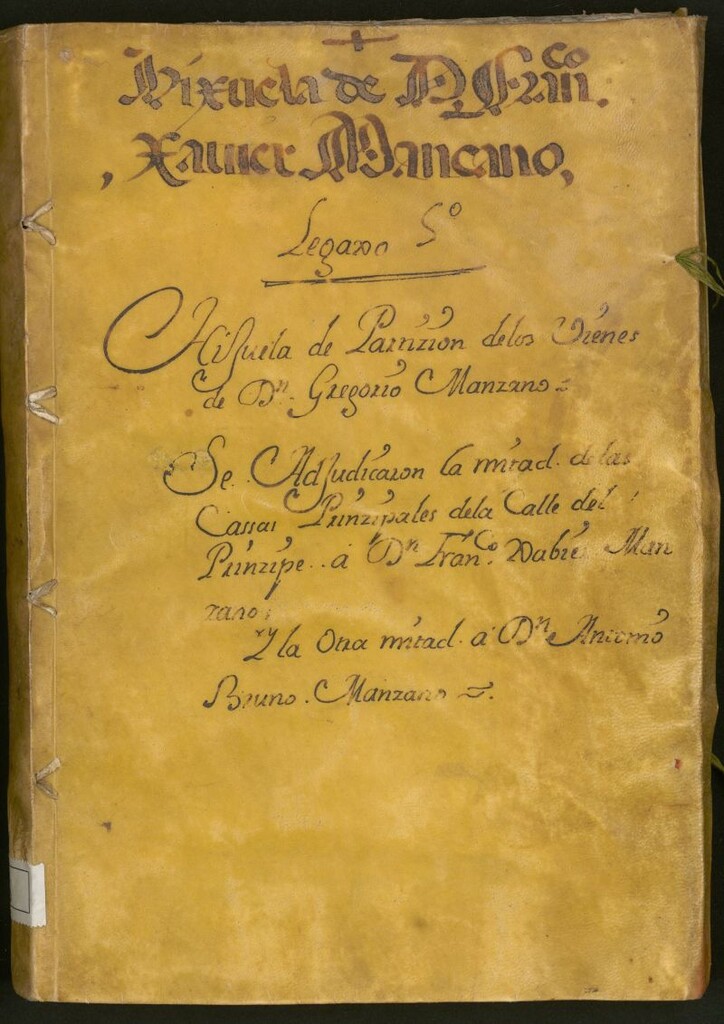 Hixuela de D. Fran.co
Xavier Mancano,
Legaxo 5º
Hijuela de Partizion delos Vienes
de Dn. Gregorio Manzano=
Se Adjudicaron la mitad. delas
Cassas Prinzipales dela Calle del
Prinzipe.. a Dn Franco. Xabier Man
zano;
Y la Otra mitad. a Dn Antonio
Bruno. Manzano =.